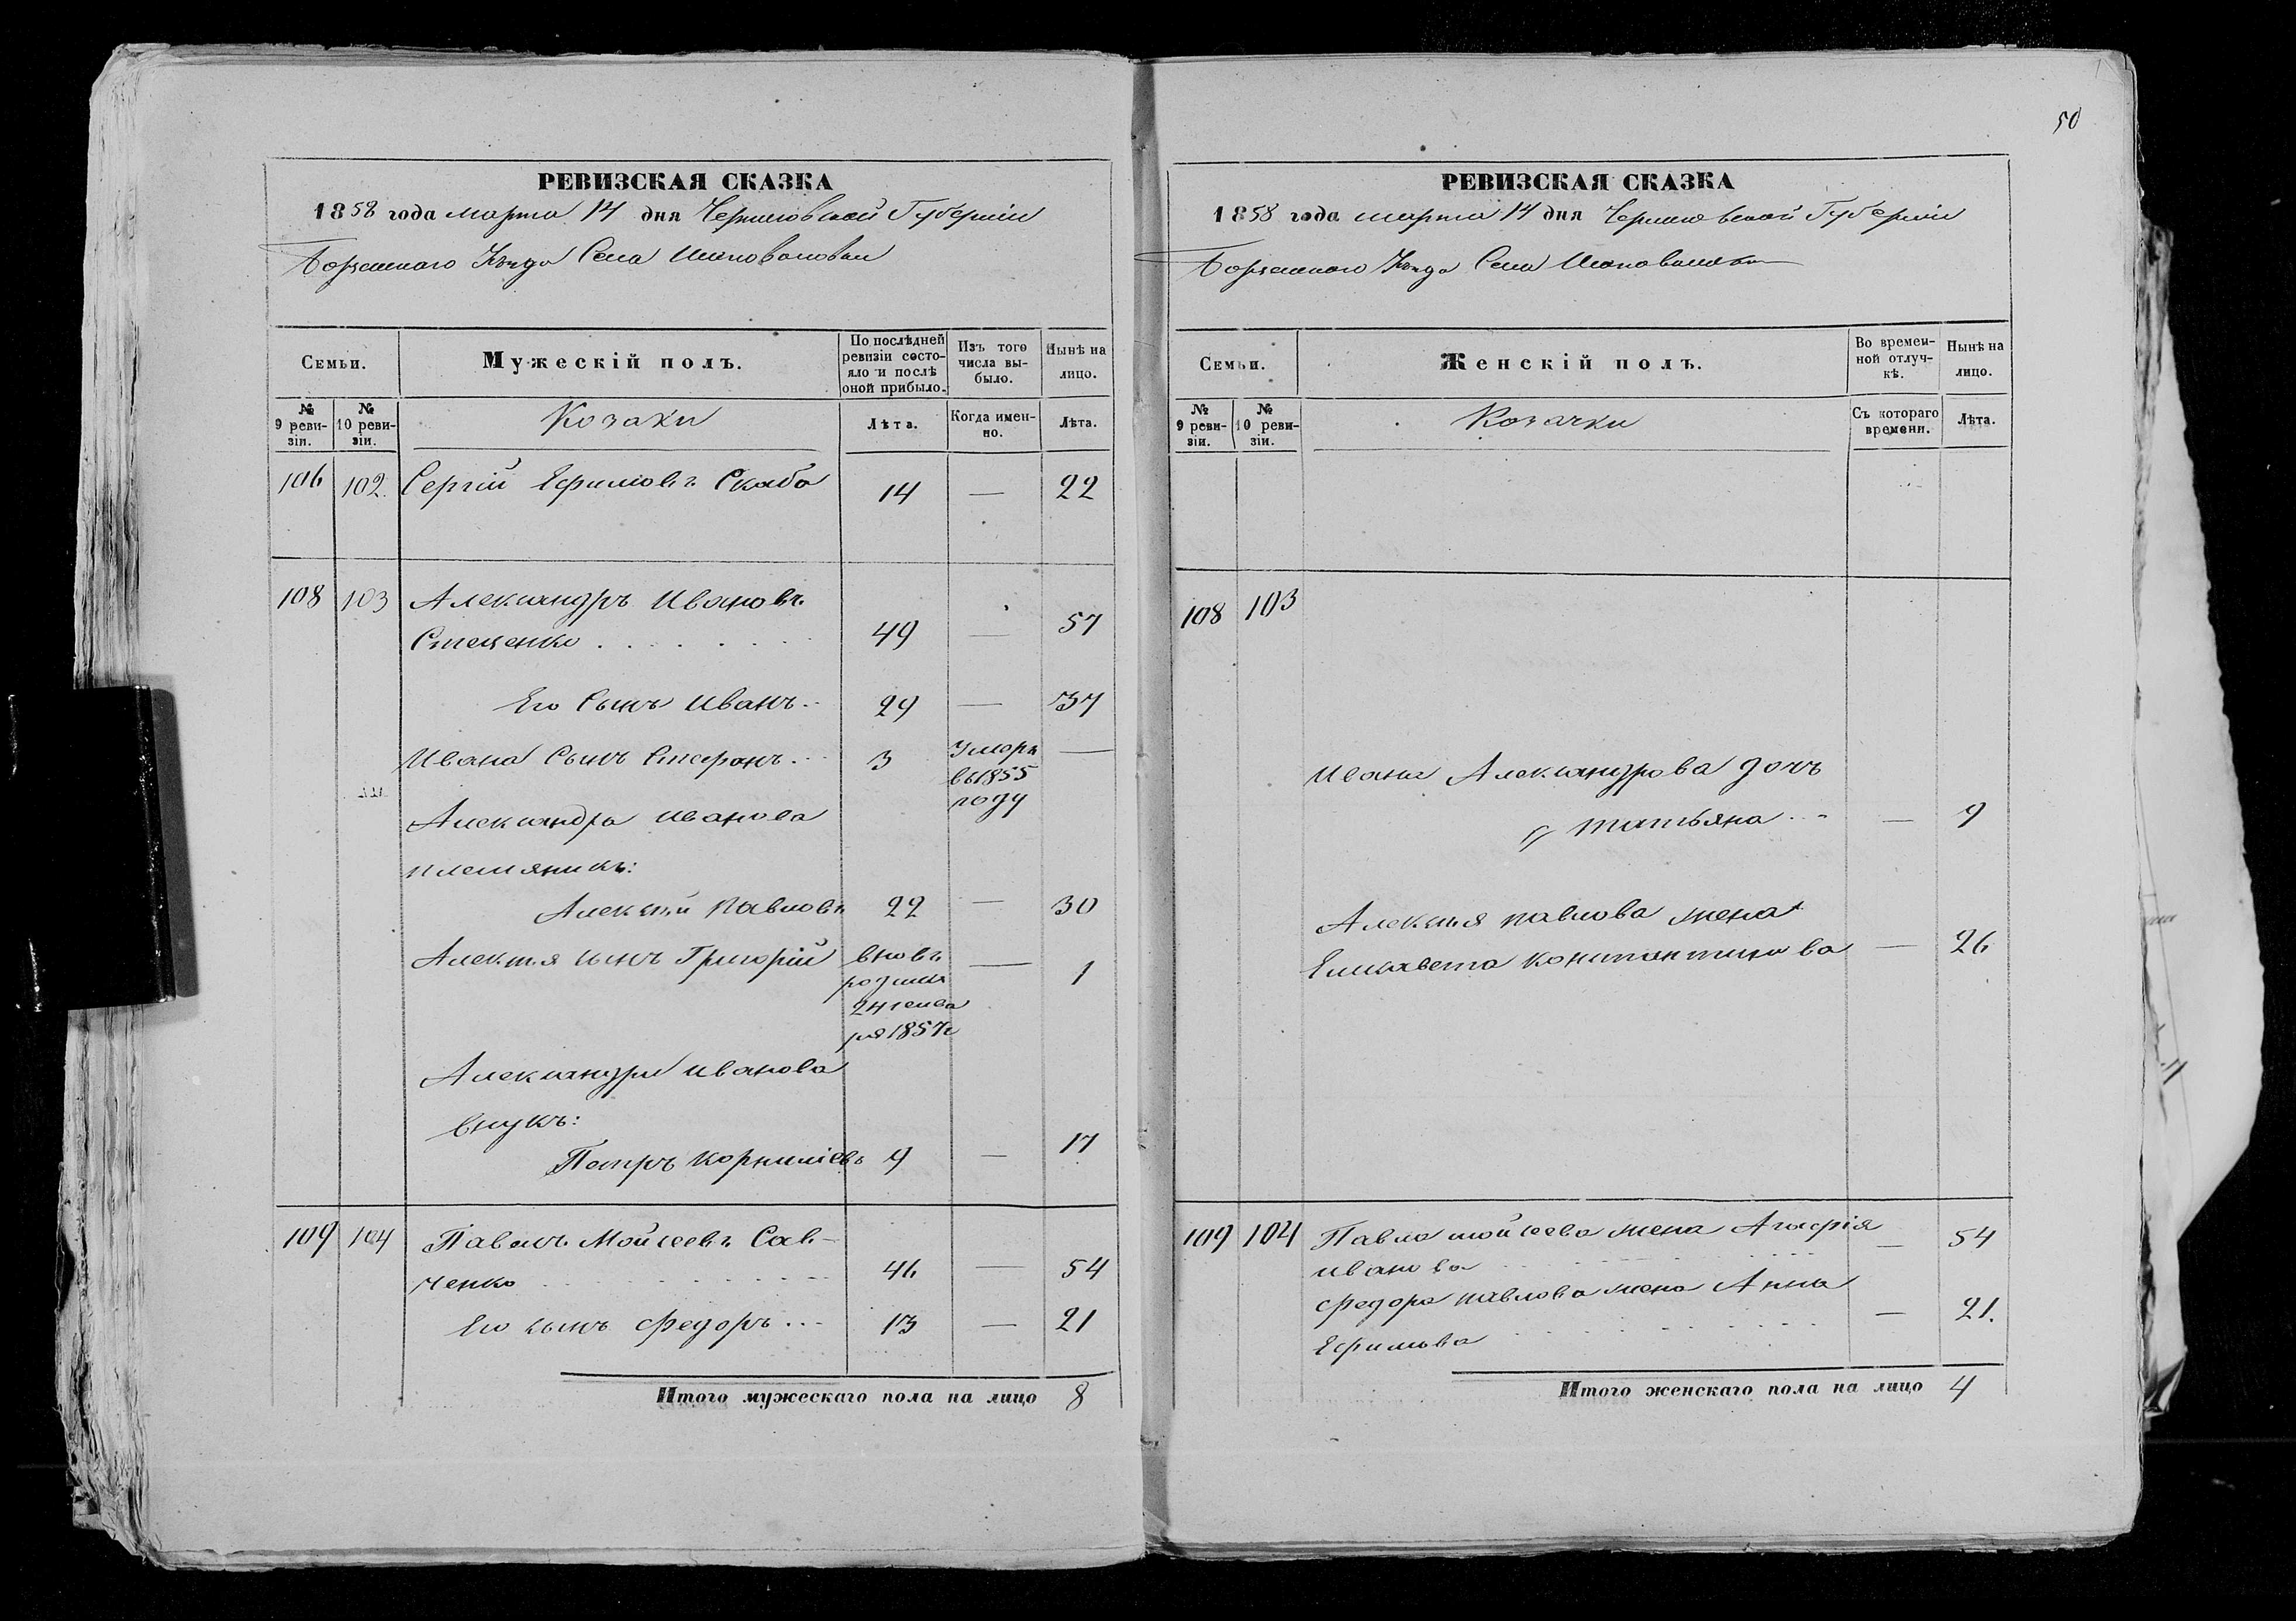 50
РЕВИЗСКАЯ СКАЗКА
1858 года марта 14 дня Черниговской Губерніи
Борзенскаго Уѣзда Села Шаповаловки
Семьи.
Мужескій полъ.
По послѣдней ревизіи состояло и послѣ оной прибыло.
Изъ того числа выбыло.
Нынѣ на лицо.
№ 9 ревизіи.
№ 10 ревизіи.
Козаки
Лѣта.
Когда именно.
Лѣта.
106 102. Сергій Ефимовъ Скаба 14 — 22
108 103 Александръ Ивановъ
Стеценко . . . . . . 49 — 57
Его Сынъ Иванъ.. 29 — 37
Ивана Сынъ Стефанъ... 3 Умеръ —
въ 1855
году
Александра Иванова
племяникъ:
Алексѣй Павловъ 22 — 30
Алексѣя сынъ Григорій вновь — 1
родился
24 генва
ря 1857 г
Александра Иванова
внукъ:
Петръ Корниліевъ 9 — 17
109 104 Павелъ Мойсеевъ Сав-
ченко . . . . . . 46 — 54
Его сынъ Федоръ... 13 — 21
Итого мужескаго пола на лицо 8
РЕВИЗСКАЯ СКАЗКА
1858 года марта 14 дня Черниговской Губерніи
Борзенскаго Уѣзда Села Шаповаловки
Семьи.
Женскій полъ.
Во временной отлучкѣ.
Нынѣ на лицо.
№ 9 ревизіи.
№ 10 ревизіи.
Козачки
Съ котораго времени.
Лѣта.
108 103
Ивана Александрова дочь
Татьяна... — 9
Алексѣя Павлова жена
Елисавета Константинова — 26
109 104 Павла Мойсеева жена Агафія — 54
Иванова . . . . . .
Федора Павлова жена Анна
Ефимова . . . . . . — 21.
Итого женскаго пола на лицо 4